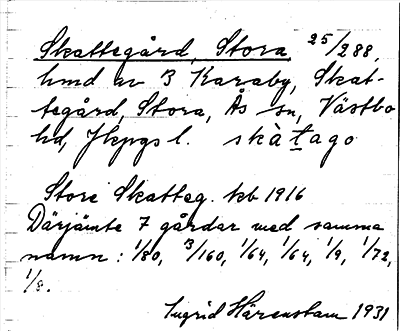 Skattegård, Stora, 25/288,
hmd av 3 Karaby, Skat-
tegård, Stora, Ås sn, Västbo
hd, Jkpgs l. skàtago
Store Skatteg. kb 1916
Därjämte 7 gårdar med samma
namn: 1/80, 3/160, 1/64, 1/64, 1/9, 1/72,
1/8.
Ingrid Härenstam 1931